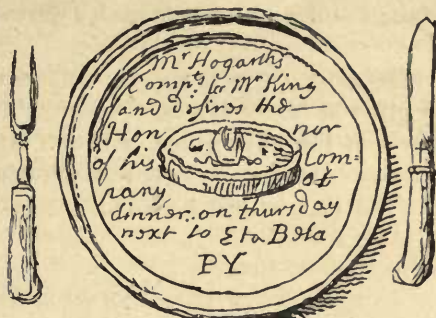 Mr Hogarth's
Compts to Mr King
and desires the
Hon nor
of his Com=
pany at
dinner on thursday
next to Eta Beta
PY